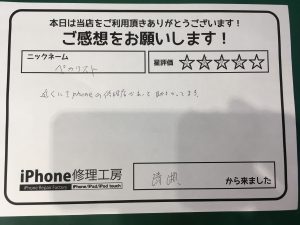 本日は当店をご利用頂きありがとうございます！
ご感想をお願いします！
ニックネーム
星評価 ☆☆☆☆☆
近くにIphoneの修理店があって助かってます。
iPhone修理工房
iPhone Repair Factory iPhone/iPad/iPod touch
から来ました